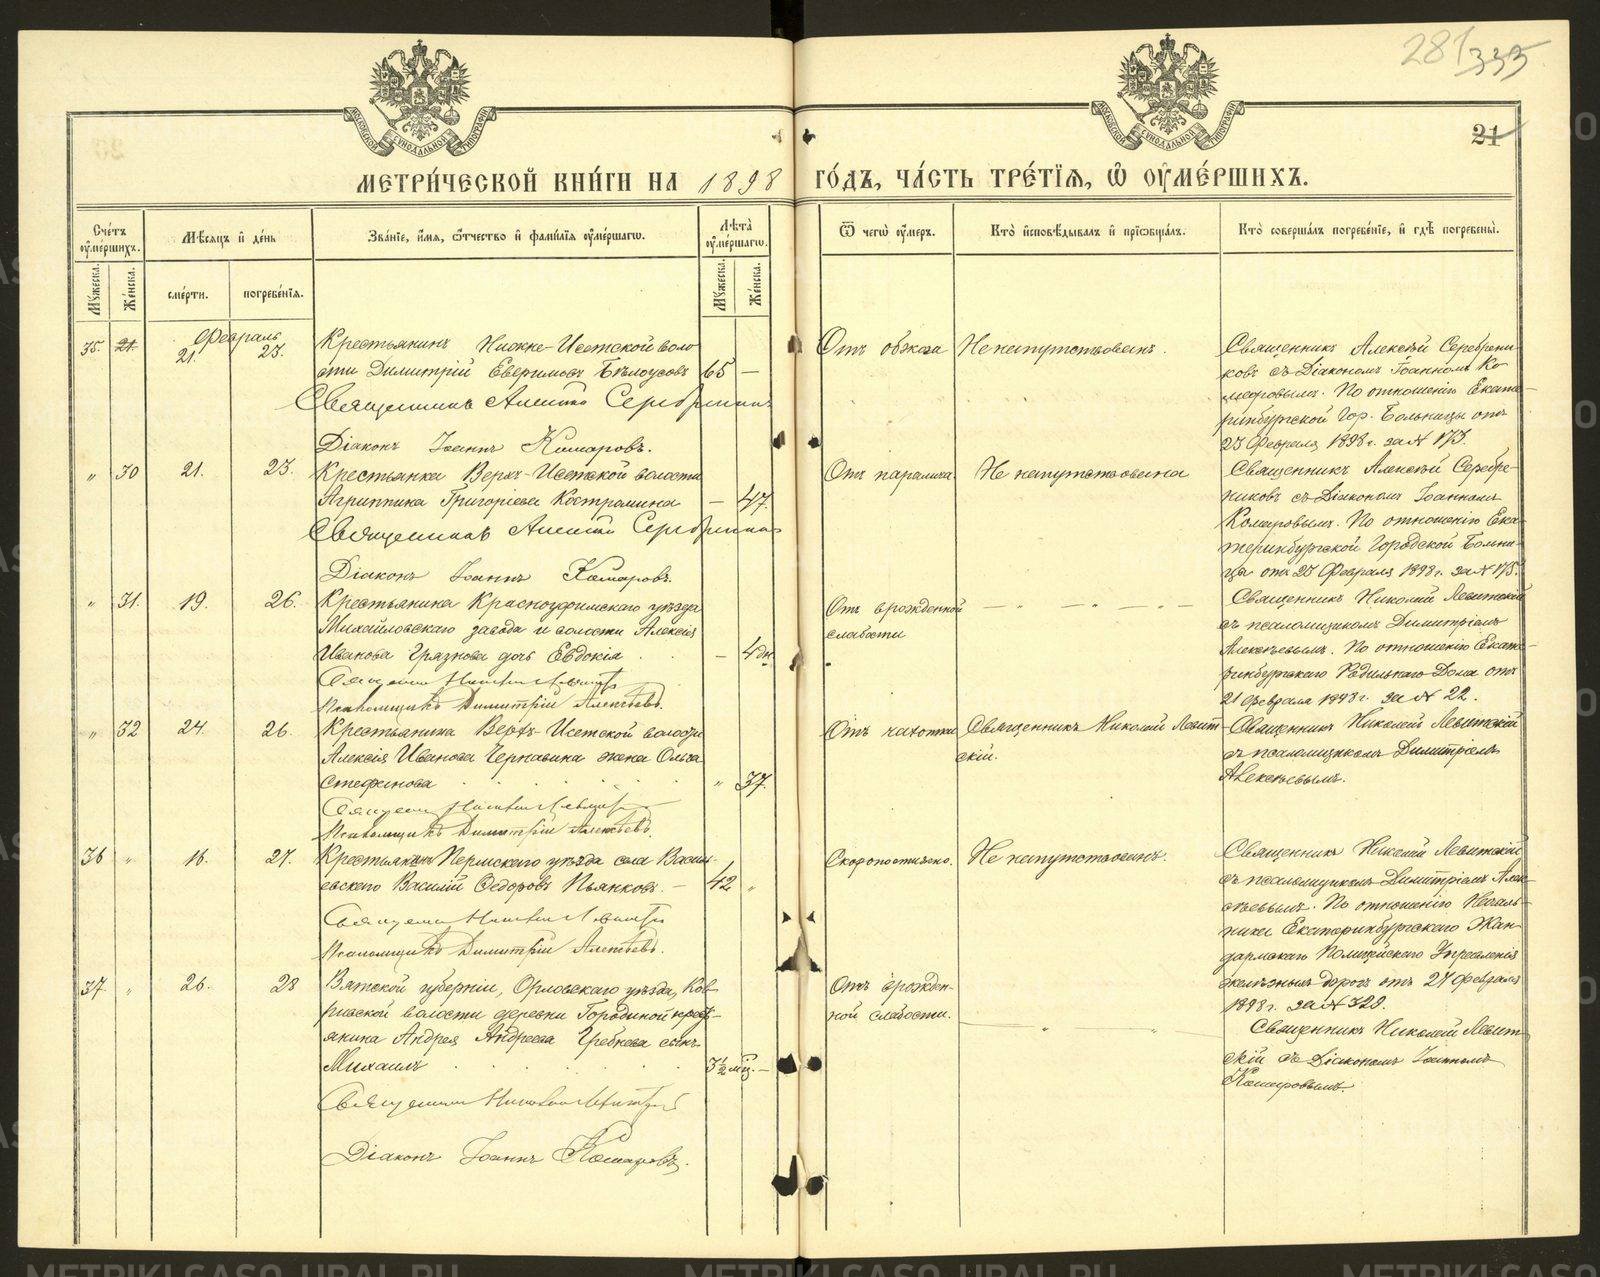 281 335
МОСКОВСКОЙ СѴНОДАЛЬНОЙ ТИПОГРАФІИ
МОСКОВСКОЙ СѴНОДАЛЬНОЙ ТИПОГРАФІИ
21
МЕТРИ́ЧЕСКОЙ КНИ́ГИ НА 1898 ГО́ДЪ, ЧА́СТЬ ТРЕ́ТІЯ, Ѡ ОУМЕ́РШИХЪ.
Сче́тъ оуме́ршихъ.
Мѣсяцъ и де́нь
Зва́ніе, и́мя, о́тчество и фами́лія оуме́ршаго.
Лѣта̀ оуме́ршаго.
Ѿ чегѡ̀ оу́меръ.
Кто̀ исповѣ́дывалъ и пріобща́лъ.
Кто̀ соверша́лъ погребе́ніе, и гдѣ̀ погребены̀.
Му́жеска. Же́нска.
сме́рти. погребе́нія.
Му́жеска. Же́нска.
Февраль
35. 21. 21. 23. Крестьянинъ Нижне-Исетской воло
сти Димитрій Евфимовъ Бѣлоусовъ 65 —
Священникъ Алексій Серебрениковъ
Діаконъ Іоаннъ Комаровъ.
Отъ обжога
Не напутствованъ.
Священникъ Алексѣй Серебрени
ковъ съ Діакономъ Іоанномъ Ко
маровымъ. По отношенію Екате
ринбургской Гор. Больницы отъ
23 Февраля 1898 г. за № 173.
" 30 21. 23. Крестьянка Верхъ-Исетской волости
Агриппина Григоріева Костромина — 47.
Священникъ Алексій Серебрениковъ
Діаконъ Іоаннъ Комаровъ.
Отъ паралича.
Не напутствована
Священникъ Алексѣй Серебре-
никовъ съ Діакономъ Іоанномъ
Комаровымъ. По отношенію Ека-
теринбургской Городской Больни-
цы отъ 23 Февраля 1898 г. за № 175.
" 31. 19. 26. Крестьянина Красноуфимскаго уѣзда
Михайловскаго завода и волости Алексія
Иванова Грязнова дочь Евдокія — 4 дн.
Священникъ Николай Левитскій
Псаломщикъ Димитрій Алексѣевъ.
Отъ врожденной
слабости
— " — " — " —
Священникъ Николай Левитскій
съ псаломщикомъ Димитріемъ
Алексѣевымъ. По отношенію Екате-
ринбургскаго Родильнаго Дома отъ
21 Февраля 1898 г. за № 22.
" 32 24. 26. Крестьянина Верхъ-Исетской волости
Алексія Иванова Чернавина жена Ольга
Стефанова " 37.
Священникъ Николай Левитскій
Псаломщикъ Димитрій Алексѣевъ.
Отъ чахотки
Священникъ Николай Левит-
скій.
Священникъ Николай Левитскій
съ псаломщикомъ Димитріемъ
Алексѣевымъ.
36 " 16. 27. Крестьянинъ Пермскаго уѣзда села Васил-
евскаго Василій Ѳедоровъ Пьянковъ. — 42 "
Священникъ Николай Левитскій
Псаломщикъ Димитрій Алексѣевъ.
Скоропостижно.
Не напутствованъ.
Священникъ Николай Левитскій
съ псаломщикомъ Димитріемъ Алек-
сѣевымъ. По отношенію Началь-
ника Екатеринбургскаго Жан-
дармскаго Полицейскаго Управленія
желѣзныхъ дорогъ отъ 27 февраля
1898 г. за № 320.
37. " 26. 28 Вятской губерніи, Орловскаго уѣзда,
волости деревни Городиной кресть-
янина Андрея Андреева Гребнева сынъ
Михаилъ 3½ мц. —
Священникъ Николай Левитскій
Діаконъ Іоаннъ Комаровъ.
Отъ врожден-
ной слабости.
— " — " —
Священникъ Николай Левит-
скій съ Діакономъ Іоанномъ
Комаровымъ.
METRIKI.GASO-URAL.RU